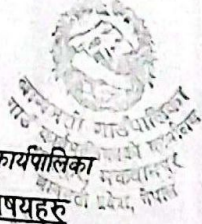 गाउँपालिका
गाउँ कार्यपालिकाको कार्यालय
मकवानपुर
प्रदेश, नेपाल
कार्यपालिका
षयहरु